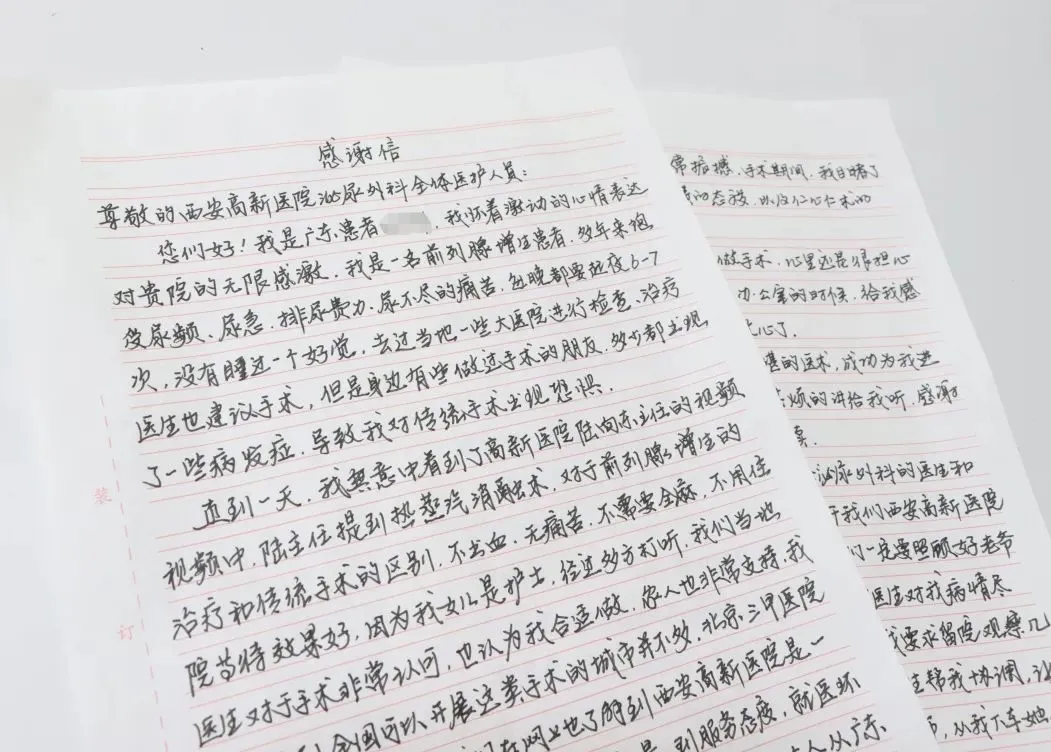 感谢信
尊敬的西安高新医院泌尿外科全体医护人员：
您们好！我是广东患者，我怀着激动的心情表达
对贵院的无限感激，我是一名前列腺增生患者，多年来饱
受尿频、尿急、排尿费力、尿不尽的痛苦，每晚都要起夜6-7
次，没有睡过一个好觉，去过当地一些大医院进行检查、治疗
医生也建议手术，但是身边有些做过手术的朋友，多少都出现
了一些病发症，导致我对传统手术出现恐惧．
直到一天，我无意中看到了高新医院陆向东主任的视频
视频中，陆主任提到热蒸汽消融术，对于前列腺增生的
治疗和传统手术的区别，不出血，无痛苦，不需要全麻，不用住
院等特效果好，因为我女儿是护士，经过多方打听，我们当地
医生对于手术非常认可，也认为我合适做，家人也非常支持，我
全国可以开展这类手术的城市并不多，北京三甲医院
在网上也了解到西安高新医院是一
是到服务态度，就医环
人从广东
常振撼，手术期间，我目睹了
态度，以及仁心仁术的
做手术，心里还是很担心
办公室的时候，给我感
心了．
湛的医术，成功为我进
烦的讲给我听，感谢
泌尿外科的医生和
我们西安高新医院
们一定要照顾好老爷
医生对我病情尽
我要求留院观察几
主帮我协调，让
，从我下车她
装
订